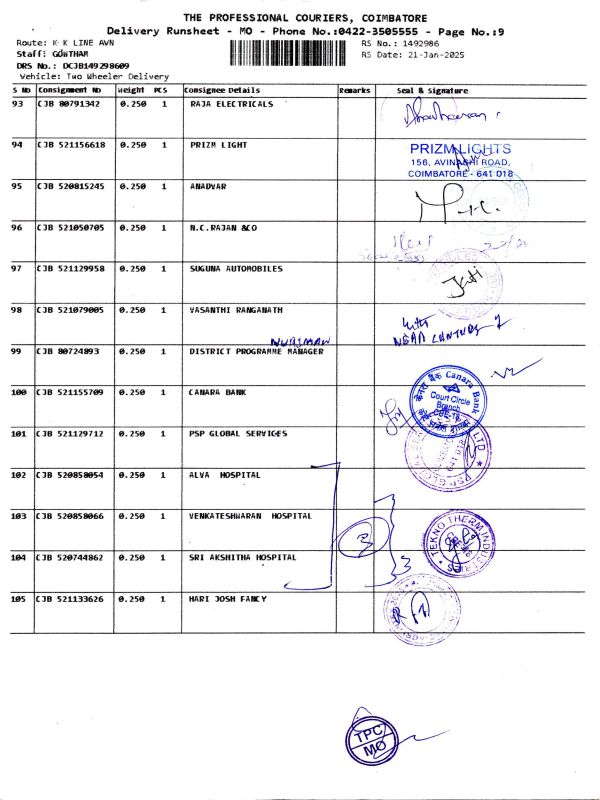 THE PROFESSIONAL COURIERS, COIMBATORE
Delivery Runsheet - MO - Phone No.:0422-3505555 - Page No.:9
Route: K K LINE AWN
RS No.: 1492986
Staff: GOWTHAM
RS Date: 21-Jan-2025
DRS No.: DCJB149298609
Vehicle: Two Wheeler Delivery
S No Consignment No Weight PCS Consignee Details Remarks Seal & Signature
93 CJB 80791342 0.250 1 RAJA ELECTRICALS
94 CJB 521156618 0.250 1 PRIZM LIGHT
PRIZM LIGHTS
156, AVINASHI ROAD,
COIMBATORE - 641 018
95 CJB 520815245 0.250 1 ANADVAR
96 CJB 521050705 0.250 1 N.C.RAJAN &CO
97 CJB 521129958 0.250 1 SUGUNA AUTOMOBILES
98 CJB 521079005 0.250 1 VASANTHI RANGANATH
99 CJB 80724893 0.250 1 DISTRICT PROGRAMME MANAGER
100 CJB 521155709 0.250 1 CANARA BANK
केनरा बैंक Canara Bank
Court Circle
Branch
101 CJB 521129712 0.250 1 PSP GLOBAL SERVICES
102 CJB 520858054 0.250 1 ALVA HOSPITAL
103 CJB 520858066 0.250 1 VENKATESHWARAN HOSPITAL
TEKNO THERM INDUSTRIES
104 CJB 520744862 0.250 1 SRI AKSHITHA HOSPITAL
3
105 CJB 521133626 0.250 1 HARI JOSH FANCY
TPC
MO